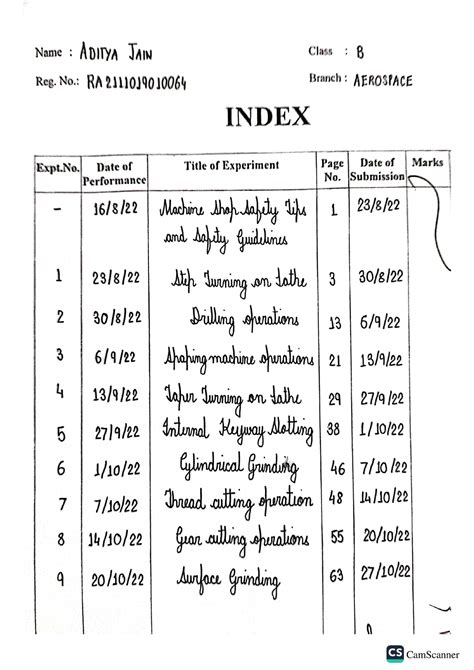 Name : ADITYA JAIN Class : B
Reg. No.: RA2111019010064 Branch : AEROSPACE
INDEX
Expt.No. Date of Performance Title of Experiment Page No. Date of Submission Marks
- 16/8/22 Machine Shop Safety Tips 1 23/8/22
and Safety Guidelines
1 23/8/22 Step Turning on Lathe 3 30/8/22
2 30/8/22 Drilling operations 13 6/9/22
3 6/9/22 Shaping machine operations 21 13/9/22
4 13/9/22 Taper Turning on Lathe 29 27/9/22
5 27/9/22 Internal Keyway Slotting 38 1/10/22
6 1/10/22 Cylindrical Grinding 46 7/10/22
7 7/10/22 Thread cutting operation 48 14/10/22
8 14/10/22 Gear cutting operations 55 20/10/22
9 20/10/22 Surface Grinding 63 27/10/22
CS CamScanner